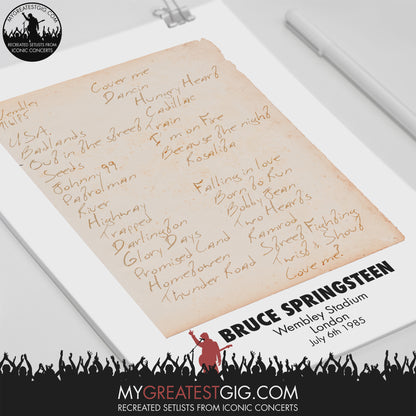 MYGREATESTGIG.COM
RECREATED SETLISTS FROM
ICONIC CONCERTS
Wembley
U.S.A.
Badlands
Out in the street
Seeds
Johnny 99
Patrolman
River
Highway
Trapped
Darlington
Glory Days
Promised Land
Hometown
Thunder Road
Cover me
Dancin
Hungry Heart
Cadillac
Train
I'm on Fire
Because the night
Rosalita
Falling in love
Born to Run
Bobby Jean
Two Hearts
Ramrod
Street Fighting
Twist & Shout
Love me?
BRUCE SPRINGSTEEN
Wembley Stadium
London
July 6th 1985
MYGREATESTGIG.COM
RECREATED SETLISTS FROM ICONIC CONCERTS